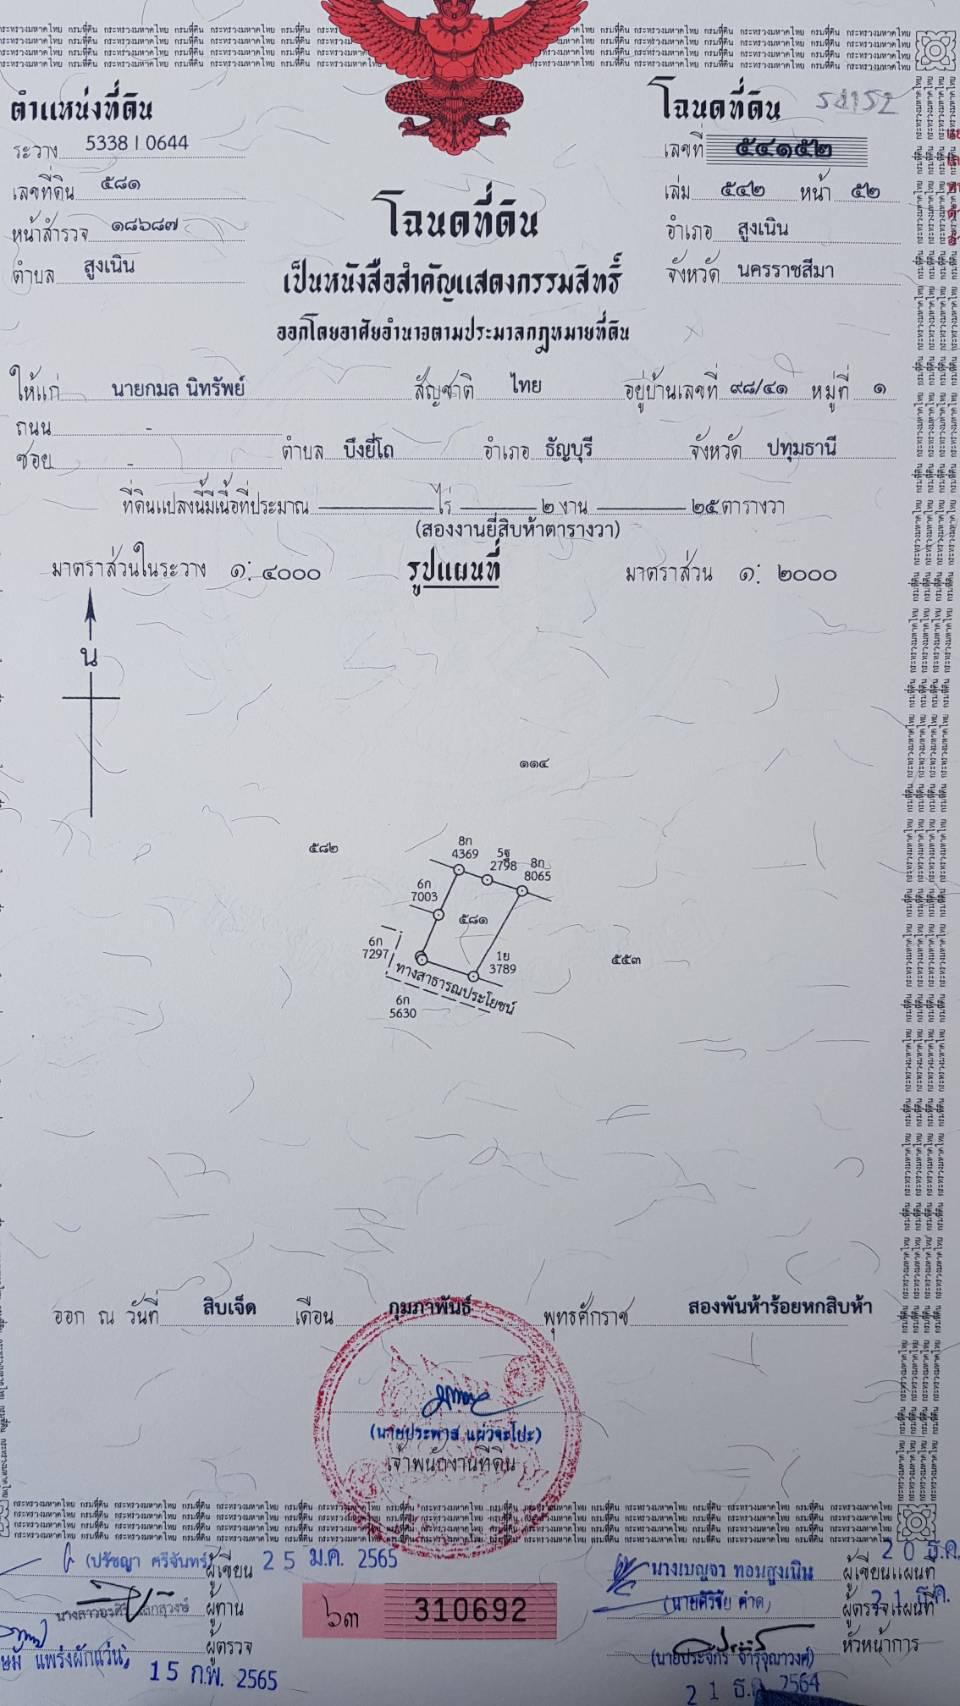 ตำแหน่งที่ดิน
ระวาง 5338 I 0644
เลขที่ดิน ๕๘๑
หน้าสำรวจ ๑๘๖๘๗
ตำบล สูงเนิน
โฉนดที่ดิน 54152
เลขที่ ๕๔๑๕๒
เล่ม ๕๔๒ หน้า ๕๒
อำเภอ สูงเนิน
จังหวัด นครราชสีมา
โฉนดที่ดิน
เป็นหนังสือสำคัญแสดงกรรมสิทธิ์
ออกโดยอาศัยอำนาจตามประมวลกฎหมายที่ดิน
ให้แก่ นายกมล นิทรัพย์ สัญชาติ ไทย อยู่บ้านเลขที่ ๙๘/๔๑ หมู่ที่ ๑
ถนน -
ซอย - ตำบล บึงยี่โถ อำเภอ ธัญบุรี จังหวัด ปทุมธานี
ที่ดินแปลงนี้มีเนื้อที่ประมาณ ไร่ ๒ งาน ๒๕ ตารางวา
(สองงานยี่สิบห้าตารางวา)
มาตราส่วนในระวาง ๑: ๔๐๐๐ รูปแผนที่ มาตราส่วน ๑: ๒๐๐๐
น
๑๑๔
๕๘๒
8ก
4369
5ฐ
2798
8ก
8065
6ก
7003
๕๘๑
6ก
7297
1ย
3789
๕๕๓
ทางสาธารณประโยชน์
6ก
5630
ออก ณ วันที่ สิบเจ็ด เดือน กุมภาพันธ์ พุทธศักราช สองพันห้าร้อยหกสิบห้า
เจ้าพนักงานที่ดิน
กระทรวงมหาดไทย กรมที่ดิน
(ปรัชญา ศรีจันทร์) ผู้เขียน 25 ม.ค. 2565
ผู้ทาน
ผู้ตรวจ
15 ก.พ. 2565
๖๓ 310692
นางเบญจา ทอมสูงเนิน ผู้เขียนแผนที่ 20 ธ.ค.
ผู้ตรวจแผนที่ 21 ธ.ค.
หัวหน้าการ
21 ธ.ค. 2564